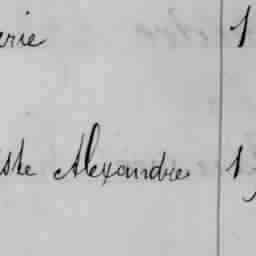 erie 1
ste Alexandre 1